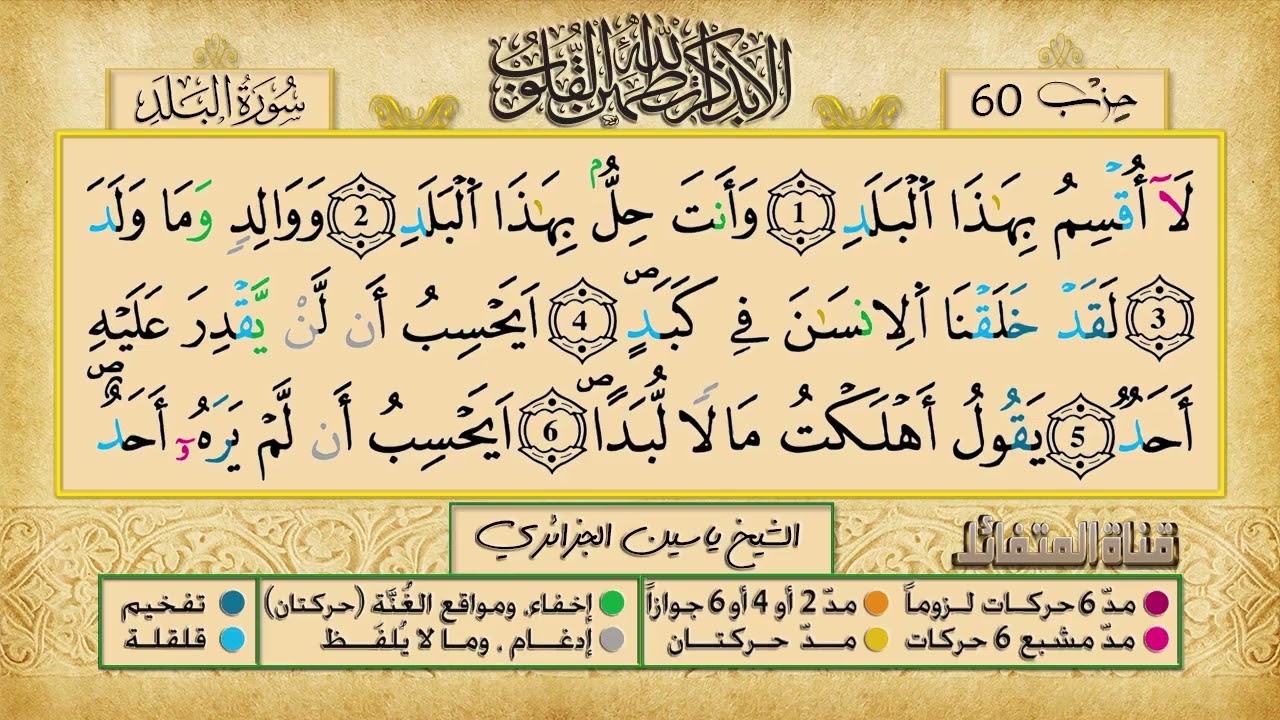 ألا بذكر الله تطمئن القلوب
حِزْب 60
سُورَةُ البَلَدِ
لَآ أُقْسِمُ بِهَٰذَا اَ۬لْبَلَدِ 1 وَأَنتَ حِلُّۢ بِهَٰذَا اَ۬لْبَلَدِ 2 وَوَالِدٖ وَمَا وَلَدَ
3 لَقَدْ خَلَقْنَا اَ۬لِانسَٰنَ فِے كَبَدٍۖ 4 اَيَحْسِبُ أَن لَّنْ يَّقْدِرَ عَلَيْهِ
أَحَدٞ 5 يَقُولُ أَهْلَكْتُ مَالاٗ لُّبَداًۖ 6 اَيَحْسِبُ أَن لَّمْ يَرَهُۥٓ أَحَدٌۖ
الشيخ ياسين الجزائري
قناة المتفائل
مدّ 6 حركات لـزوماً
مدّ 2 أو 4 أو 6 جوازاً
إخفاء، ومواقع الغُنَّة (حركتان)
تفخيم
مدّ مشبع 6 حركات
مـدّ حـركتـان
إدغام ، ومـا لا يُلفَـظ
قلقلة